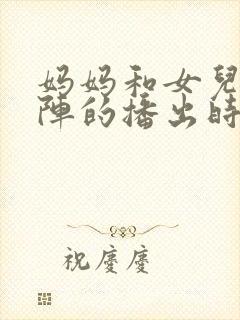 妈妈和女兒
陣的播出時
祝慶慶